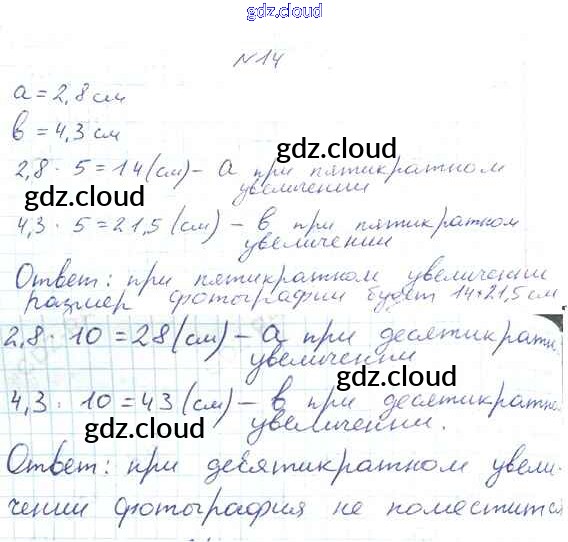 gdz.cloud
№14
a = 2,8 см
в = 4,3 см
gdz.cloud
2,8 · 5 = 14 (см) – а при пятикратном
gdz.cloud увеличении
4,3 · 5 = 21,5 (см) – в при пятикратном
gdz.cloud увеличении
Ответ: при пятикратном увеличении
размер фотографии будет 14×21,5 см.
gdz.cloud
2,8 · 10 = 28 (см) – а при десятикратн.
увеличении
gdz.cloud
4,3 · 10 = 43 (см) – в при десятикратно
gdz.cloud увеличении.
Ответ: при десятикратном увели-
чении фотография не поместится